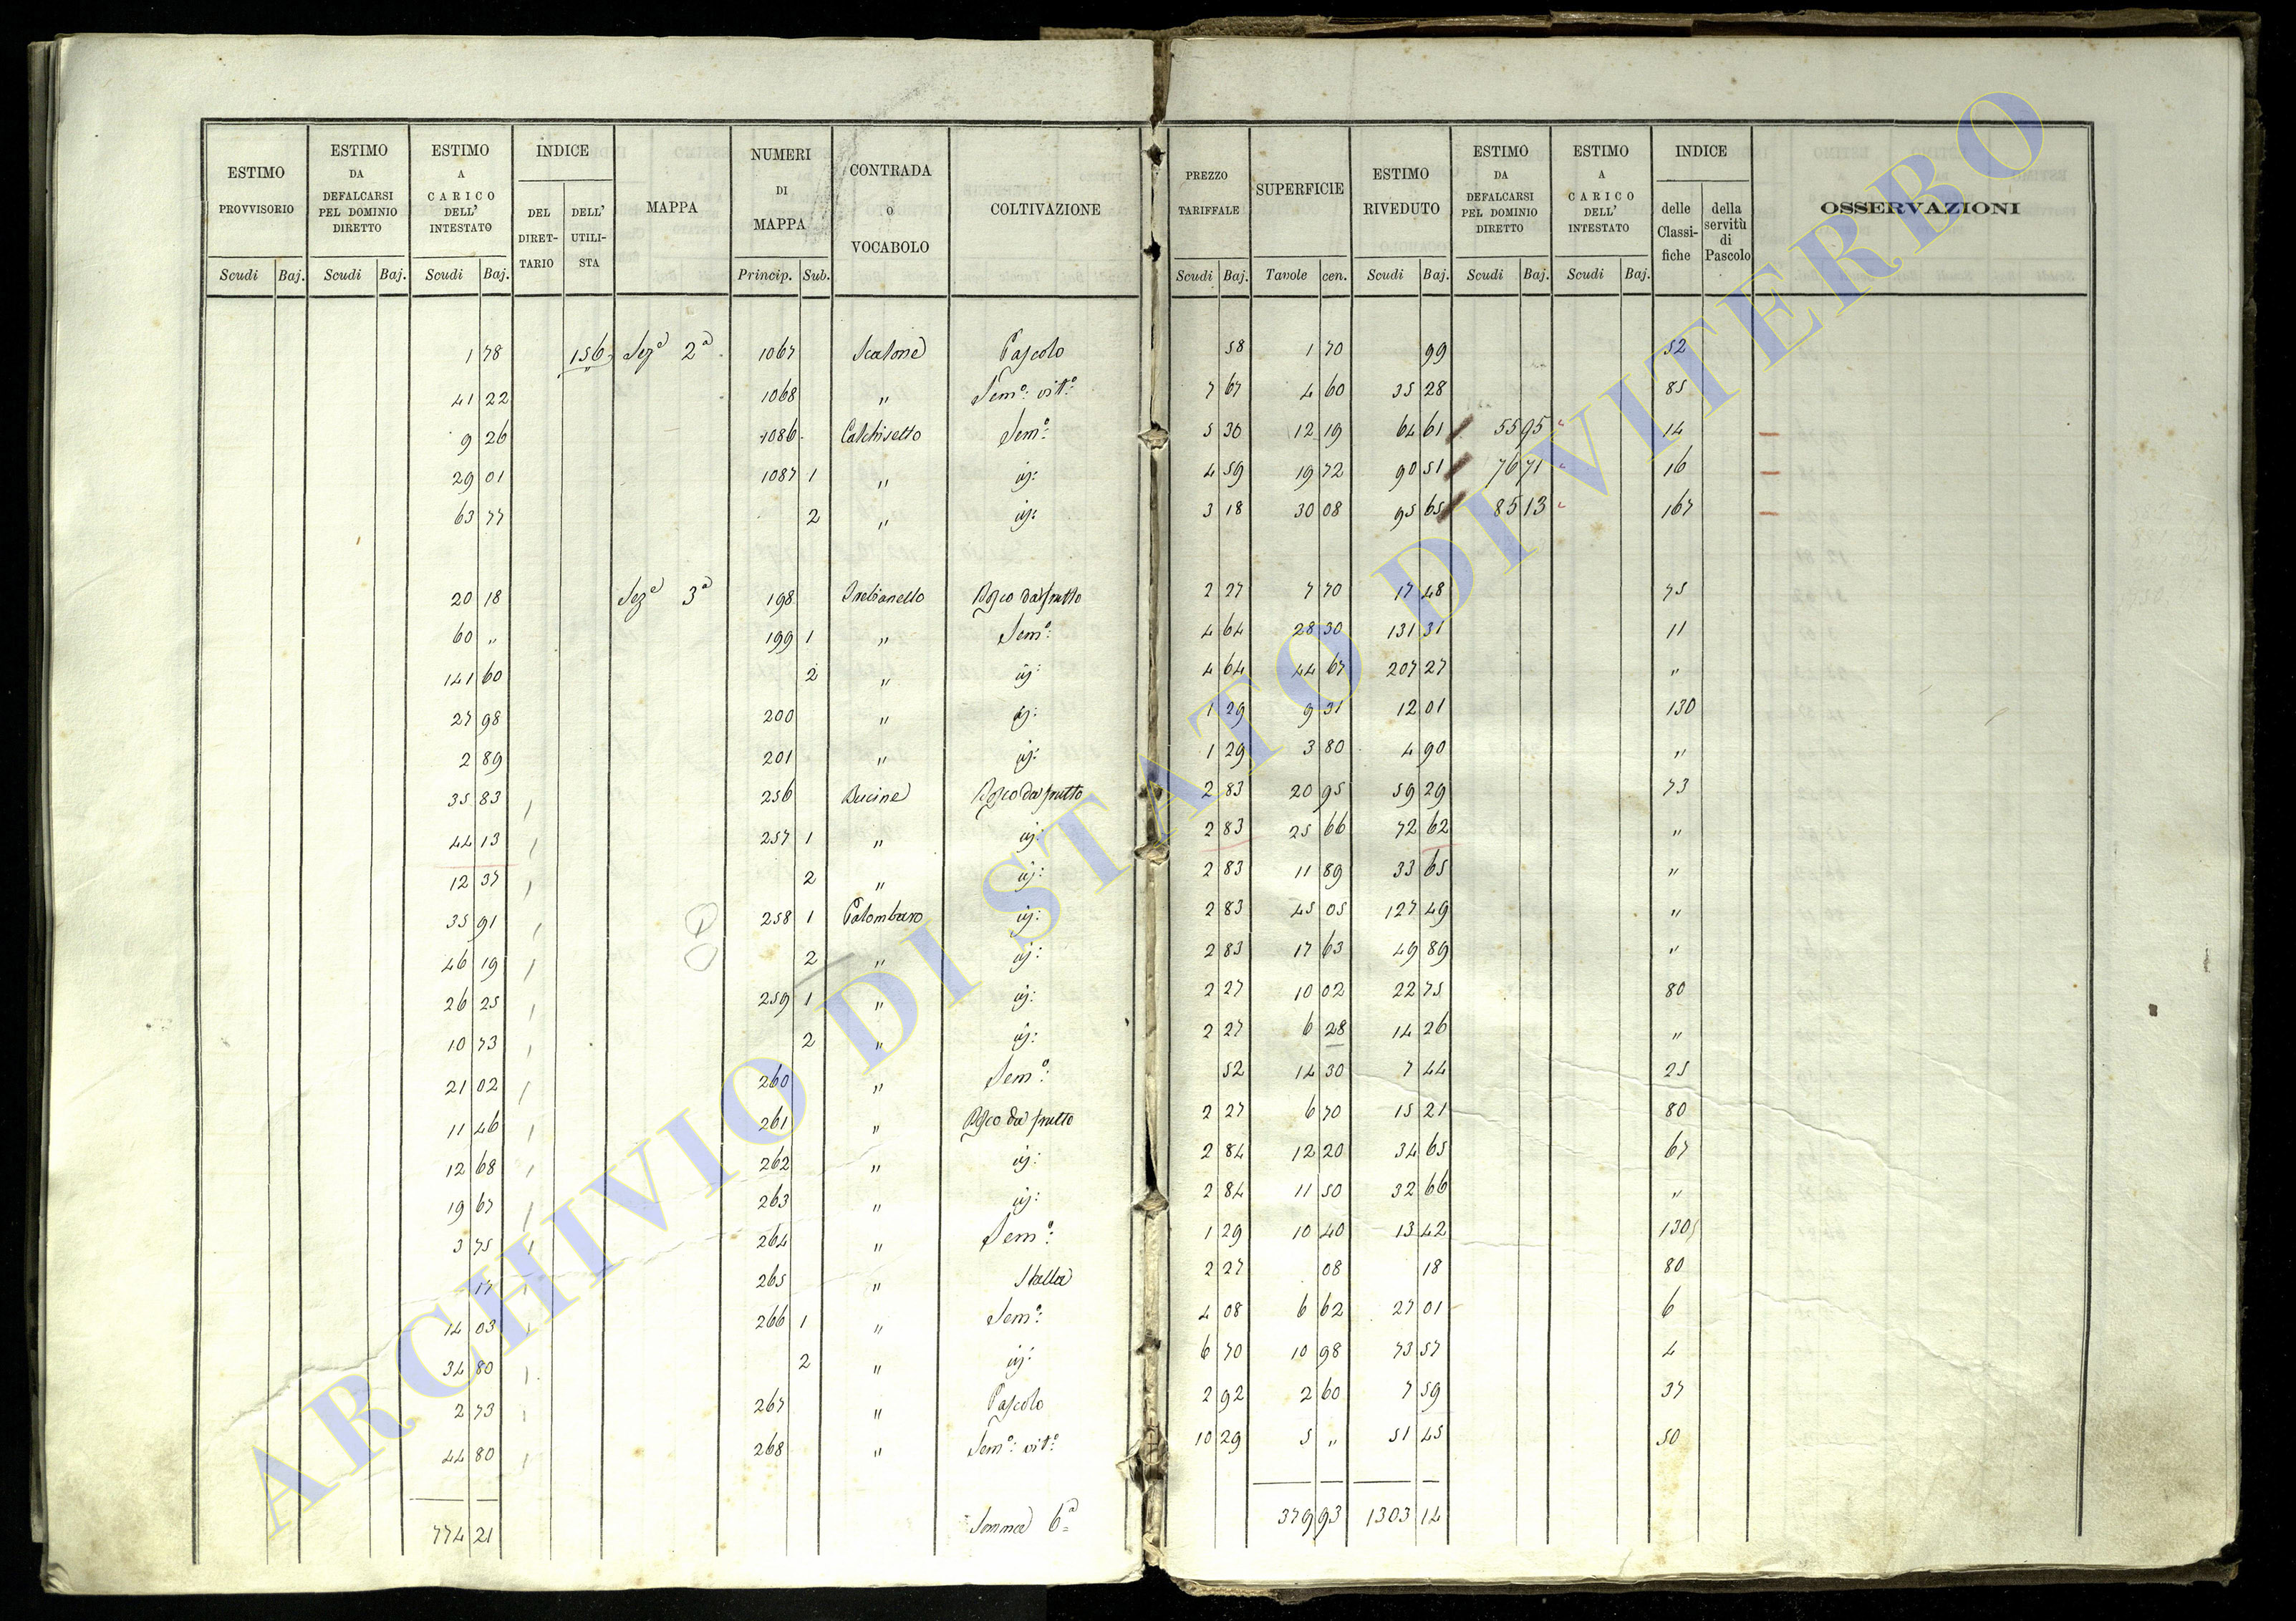 ESTIMO PROVVISORIO | ESTIMO DA DEFALCARSI PEL DOMINIO DIRETTO | ESTIMO A CARICO DELL' INTESTATO | INDICE DEL DIRET-TARIO | DELL' UTILI-STA | MAPPA | NUMERI DI MAPPA | CONTRADA O VOCABOLO | COLTIVAZIONE | PREZZO TARIFFALE | SUPERFICIE | ESTIMO RIVEDUTO | ESTIMO DA DEFALCARSI PEL DOMINIO DIRETTO | ESTIMO A CARICO DELL' INTESTATO | INDICE delle Classi-fiche | della servitù di Pascolo | OSSERVAZIONI
Scudi Baj. | Scudi Baj. | Scudi Baj. | Princip. Sub. | Scudi Baj. | Tavole cen. | Scudi Baj. | Scudi Baj. | Scudi Baj.
1 78 156 Sezᵉ 2ᵃ 1067 Pascolo 58 1 70 99 52
41 22 1068 " Semº: vitº: 7 67 4 60 35 28 85
9 26 1086 Calchisetto Semº: 5 30 12 19 64 61 55 95 14
29 01 1087 1 " ij: 4 59 19 72 90 51 76 71 16
63 77 2 " ij: 3 18 30 08 95 65 85 13 167
20 18 Sezᵉ 3ᵃ 198 Bosco da frutto 2 27 7 70 17 48 75
60 " 199 1 " Semº: 4 64 28 30 131 31 11
141 60 2 " ij: 4 64 44 67 207 27 "
27 98 200 " ij: 1 29 9 31 12 01 130
2 89 201 " ij: 1 29 3 80 4 90 "
35 83 256 Bucine Bosco da frutto 2 83 20 95 59 29 73
44 13 257 1 " ij: 2 83 25 66 72 62 "
12 37 2 " ij: 2 83 11 89 33 65 "
35 91 258 1 Palombaro ij: 2 83 45 05 127 49 "
46 19 2 " ij: 2 83 17 63 49 89 "
26 25 259 1 " ij: 2 27 10 02 22 75 80
10 73 2 " ij: 2 27 6 28 14 26 "
21 02 260 " Semº: 52 14 30 7 44 25
11 46 261 " Bosco da frutto 2 27 6 70 15 21 80
12 68 262 " ij: 2 84 12 20 34 65 67
19 67 263 " ij: 2 84 11 50 32 66 "
3 75 264 " Semº: 1 29 10 40 13 42 130
17 265 " Stalla 2 27 08 18 80
14 03 266 1 " Semº: 4 08 6 62 27 01 6
34 80 2 " ij: 6 70 10 98 73 57 4
2 73 267 " Pascolo 2 92 2 60 7 59 37
44 80 268 " Semº: vitº: 10 29 5 " 51 45 50
774 21 Somma 6ᵃ 379 93 1303 14
ARCHIVIO DI STATO DI VITERBO